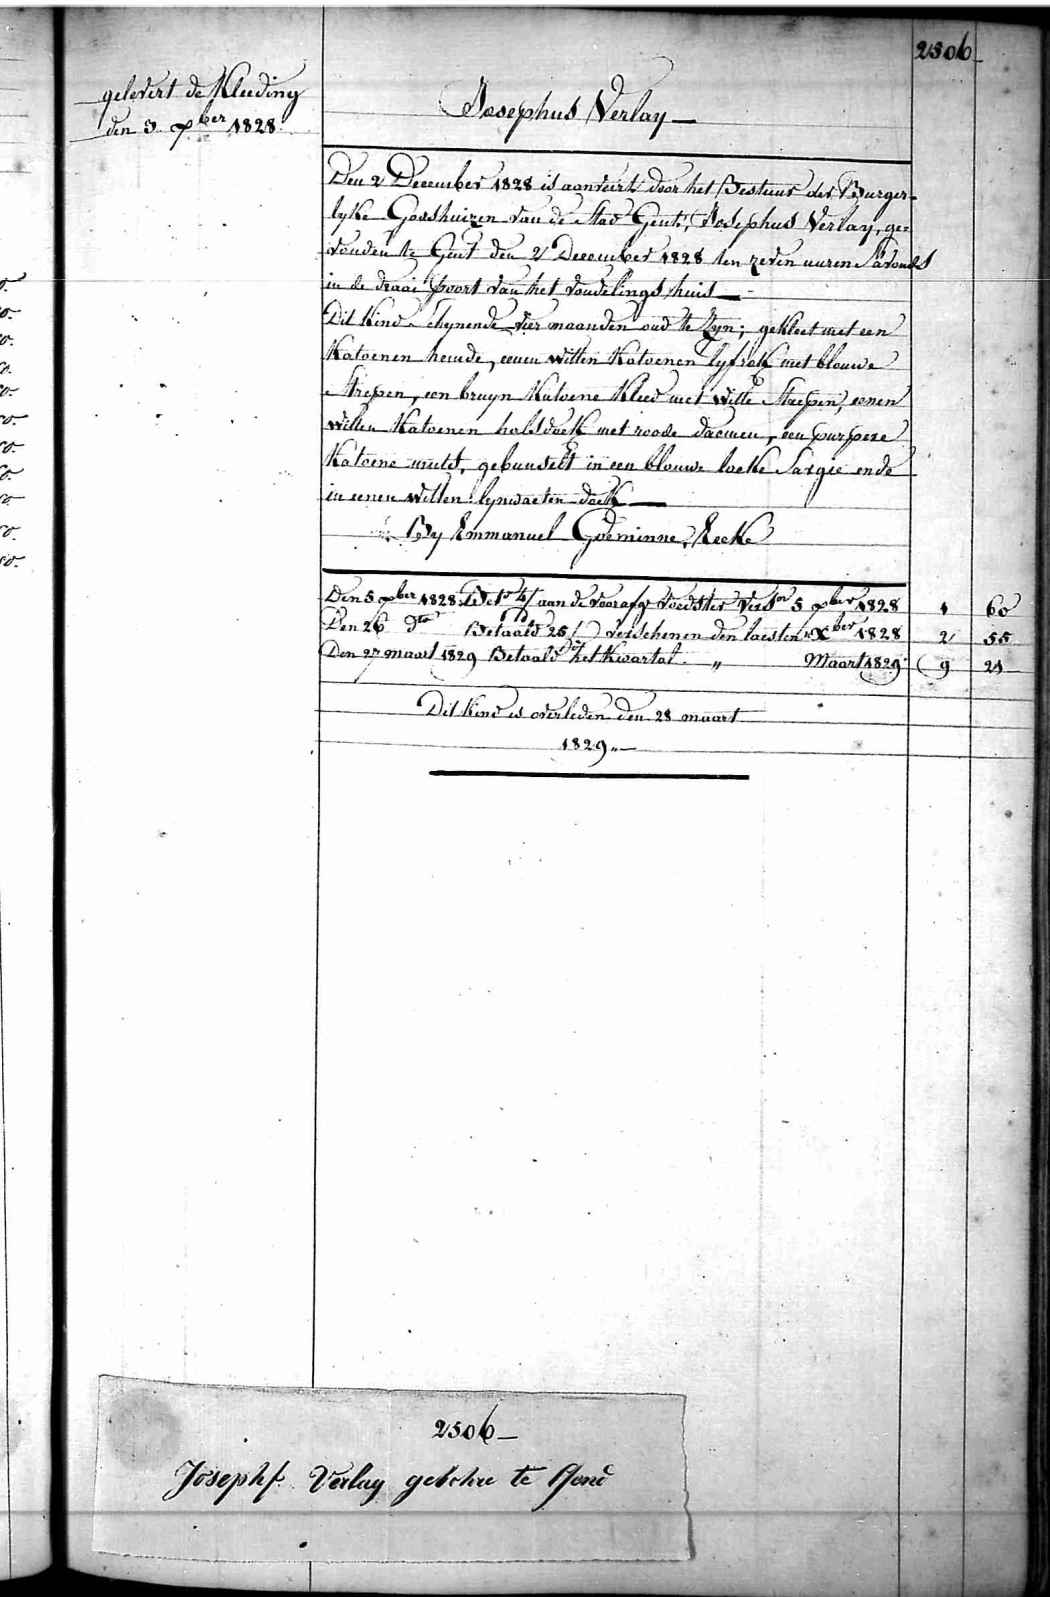 2506
gelevert de Kleeding
den 3 xber 1828.
Josephus Verlay
Den 2 December 1828 is aanveirt door het Bestuur der Burger-
lyke Godshuizen van de Stad Gent, Josephus Verlay, ge=
vonden te Gent den 2 December 1828 ten zeven uuren S'avonds
in de draai poort van het vondelings huis
Dit Kind Schynende vier maanden oud te Zyn; gekleet met een
Katoenen hemde, eenen witten Katoenen lyfrok met blouwe
Strepen, een bruyn Katoene Kleed met witte Strepen, eenen
witten Katoenen halsdoek met roode daemen, een purpere
Katoene muts, gebunselt in een blouwe locke Sargie ende
in eenen witten lynwaeten doek
By Emmanuel Goeminne, Eecke
Den 5 xber 1828 aan de voorafge voedster Vers on 5 xber 1828 1 60
Den 26 dto Betaald 25 / verschenen den laesten xber 1828 2 55
Den 27 maart 1829 Betaald het Kwartal „ Maart 1829 9 21
Dit Kind is overleden den 28 maart
1829.
2506
Josephs Verlay gebohre te Gend